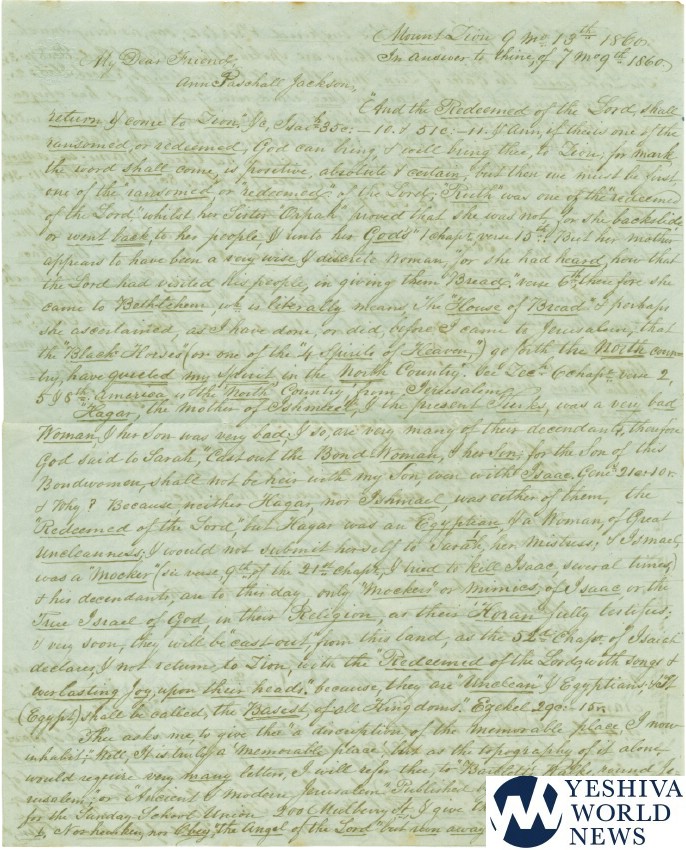 Mount Zion 9 mo. 13th 1860.
In answer to thine, of 7 mo 9th 1860.
My Dear Friend,
Ann Paschall Jackson,
"And the Redeemed of the Lord, shall
return, & come to Zion," &c, Isaeh 35c: -10. & 51c: -11. & Ann, if there is one of the
ransomed, or redeemed, God can bring & will bring thee, to Zion, for mark
the word shall come, is positive, absolute & certain, but then we must be first,
one of the "ransomed, or redeemed" of the Lord; "Ruth" was one of the "redeemed
of the Lord" whilst her Sister "Orpah" proved that she was not, for she backslide
or went back, to her people, & unto her Gods" 1 chapr verse 15th. But her mother
appears to have been a very wise & discrete Woman, for she had heard, how that
the Lord had visited his people, in giving them "Bread" verse 6th, therefore she
came to Bethlehem, wh is literally means, the "House of Bread" & perhaps
she ascertained, as I have done, or did, before I came to Jerusalem, that
the "Black Horses" (or one of the "4 Spirits of Heaven,") go forth the North coun-
try, have quieted my Spirit in the North Country." See Zech 6 chapr verse 2,
5 & 8th America is the "North" Country, from Jerusalem.
"Hagar," the mother of Ishmael, & the present Turks, was a very bad
Woman, & her Son was very bad, & so, are very many of their decendants, therefore
God said to Sarah, "Cast out the Bond Woman, & her Son, for the Son of this
Bondwomen, shall not be heir with my Son even with Isaac. Gens 21c: 10v.
& Why? Because, neither Hagar, nor Ishmail, was either of them, the
"Redeemed of the Lord", but Hagar was an Egyptian & a Woman, of Great
uncleanness, & would not submit herself to Sarah, her Mistress; & Ismael,
was a "Mocker" (see verse, 9th of the 21st chapr, & tried to kill Isaac, several times,)
& his decendants, are to this day, only "Mockers" or Mimics, of Isaac or, the
True Israel of God, in their Religion, as their "Koran" fully testifies.
& very soon, they will be "cast out," from this land, as the 52d Chapr. of Isaiah
declares, & not return to Zion, with the "Redeemed of the Lord, with songs &
everlasting Joy, upon their heads." because, they are "Unclean" & Egyptians,
(Egypt) shall be called, the Basest, of all Kingdoms. Ezekel 29c: - 15v.
Thee asks me, to give thee "a discription of the memorable place, I now
inhabit;" Well, It is truly a Memorable place, but as the topography of it alone
would require very many letters, I will refer thee, to "Bartletts Walks, around Je-
rusalem," or "Ancient & Modern Jerusalem" Published
for the Sunday School Union 200 Mulbery St &
nor hearken, nor Obey, "the Angel of the Lord" but run away
YESHIVA
WORLD
NEWS